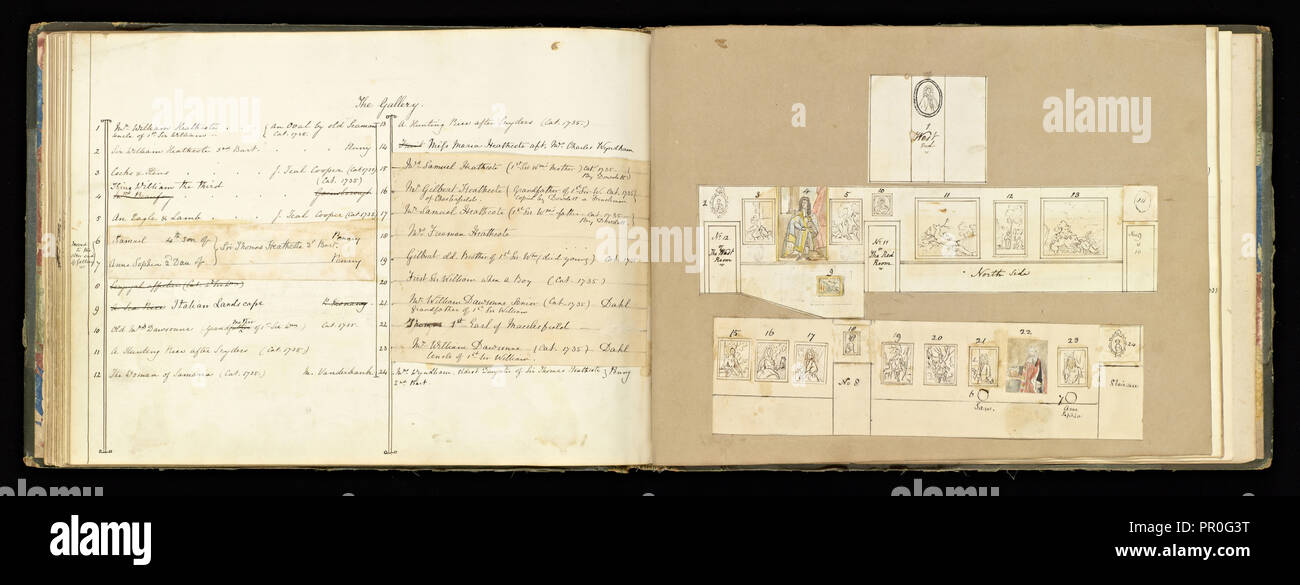 The Gallery.
1 Mr. William Heathcote an Oval by old Seaman
Uncle of 1st Sir William Cat. 1735.
2 Sir William Heathcote 3rd Bart. Penny
3 Cocks & Hens J. Teal Cooper (Cat 1735)
4 King William the third (Cat. 1735)
Gainsborough
5 An Eagle & Lamb J. Teal Cooper (Cat. 1735)
6 Samuel 4th son of Penny
Sir Thomas Heathcote 2d Bart.
7 Anne Sophia 2d Dau of Penny
8
9 Italian Landscape
10 Old Mrs Dawsonne (Grand mother of 1st Sir Wm) Cat. 1735.
11 A Hunting Piece after Snyders (Cat. 1735.)
12 The Woman of Samaria (Cat. 1735.) M. Vanderbank
13 A Hunting Piece after Snyders (Cat. 1735.)
14 Miss Maria Heathcote aft. Mrs. Charles Wyndham
15 Mrs. Samuel Heathcote (1st Sir Wms mother) Cat. 1735
By Dowdell
16 Mr. Gilbert Heathcote (Grandfather of 1st Sir W. Cat. 1735)
of Chesterfield. Copied by Dowdell
17 Mr. Samuel Heathcote (1st Sir Wms father. Cat. 1735
By Dowdell
18 Mr. Freeman Heathcote
19 Gilbert old. Brother of 1st Sir Wm (died young) Cat. 1735
20 First Sir William when a Boy (Cat. 1735)
21 Mr. William Dawsonne Senior (Cat. 1735) Dahl
Grandfather of 1st Sir William
22 Thomas 1st Earl of Macclesfield
23 Mr. William Dawsonne (Cat. 1735) Dahl
Uncle of 1st Sir William.
24 Mrs. Wyndham, eldest Daughter of Sir Thomas Heathcote Penny
2nd Bart
1
West
End
2 3 4 5 10 11 12 13 14
No 12
The West
Room
No 11
The Red
Room
9
North Side
15 16 17 18 19 20 21 22 23 24
No 8
6
Sam.
7
Ann
Sophia
Staircase
alamy
alamy
alamy
alamy
Image ID: PR0G3T
www.alamy.com